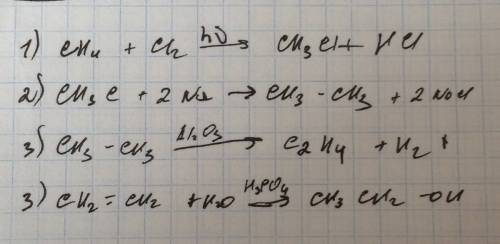 1) CH4 + Cl2 hν→ CH3Cl + HCl
2) CH3C + 2 Na → CH3 - CH3 + 2 NaCl
3) CH3 - CH3 Al2O3→ C2H4 + H2↑
3) CH2 = CH2 + H2O H3PO4→ CH3 CH2 - OH